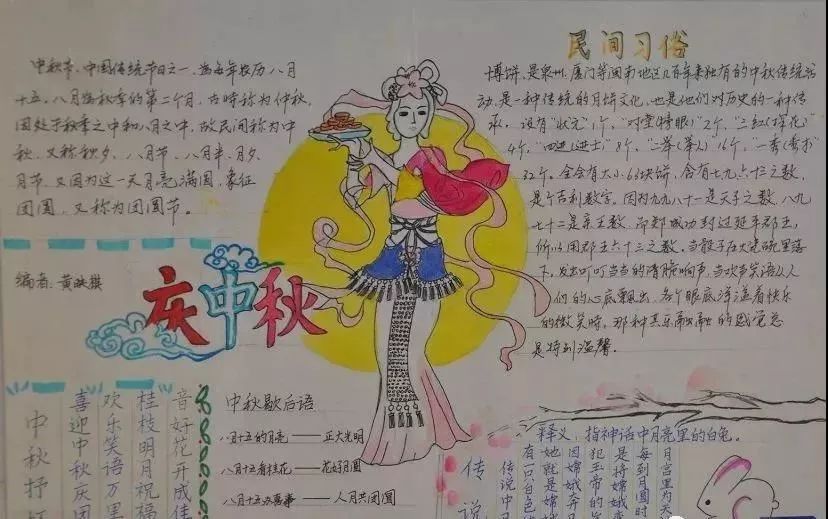 中秋节、中国传统节日之一、为每年农历八月
十五、八月为秋季的第二个月，古时称为仲秋，
因处于秋季之中和八月之中，故民间称为中
秋、又称秋夕、八月节、八月半、月夕、
月节、又因为这一天月亮满圆，象征
团圆，又称为团圆节。
编者：黄
庆中秋
民间习俗
博饼，是泉州、厦门等闽南地区几百年来独有的中秋传统活
动，是一种传统的月饼文化，也是他们对历史的一种传
承。设有"状元"1个，"对堂(榜眼)"2个，"三红(探花)
4个，"四进(进士)"8个，"二举(举人)16个，一秀(秀才)
32个。全会有大小63块饼，含有七九六十三之数，
是个吉利数字。因为九九八十一是天子之数，八九
七十二是亲王数，而郑成功封过延平郡王，
所以用郡王六十三之数。当骰子在大瓷碗里落
下，发出叮叮当当的清脆响声，当欢声笑语从人
们的心底飘出，各个眼底洋溢着快乐
的微笑时，那种其乐融融的感觉总
是特别温馨。
中秋抒
喜迎中秋庆团
欢乐笑语万里
桂枝明月祝福
音好花开成佳
中秋歇后语
八月十五的月亮——正大光明
八月十五看桂花——花好月圆
八月十五办喜事——人月共团圆
释义：指神话中月亮里的白兔。
传说
月宫里为天
每到月圆时
是将嫦娥变
犯玉帝的
因嫦娥奔月
她就是嫦
有一只白色
传说中